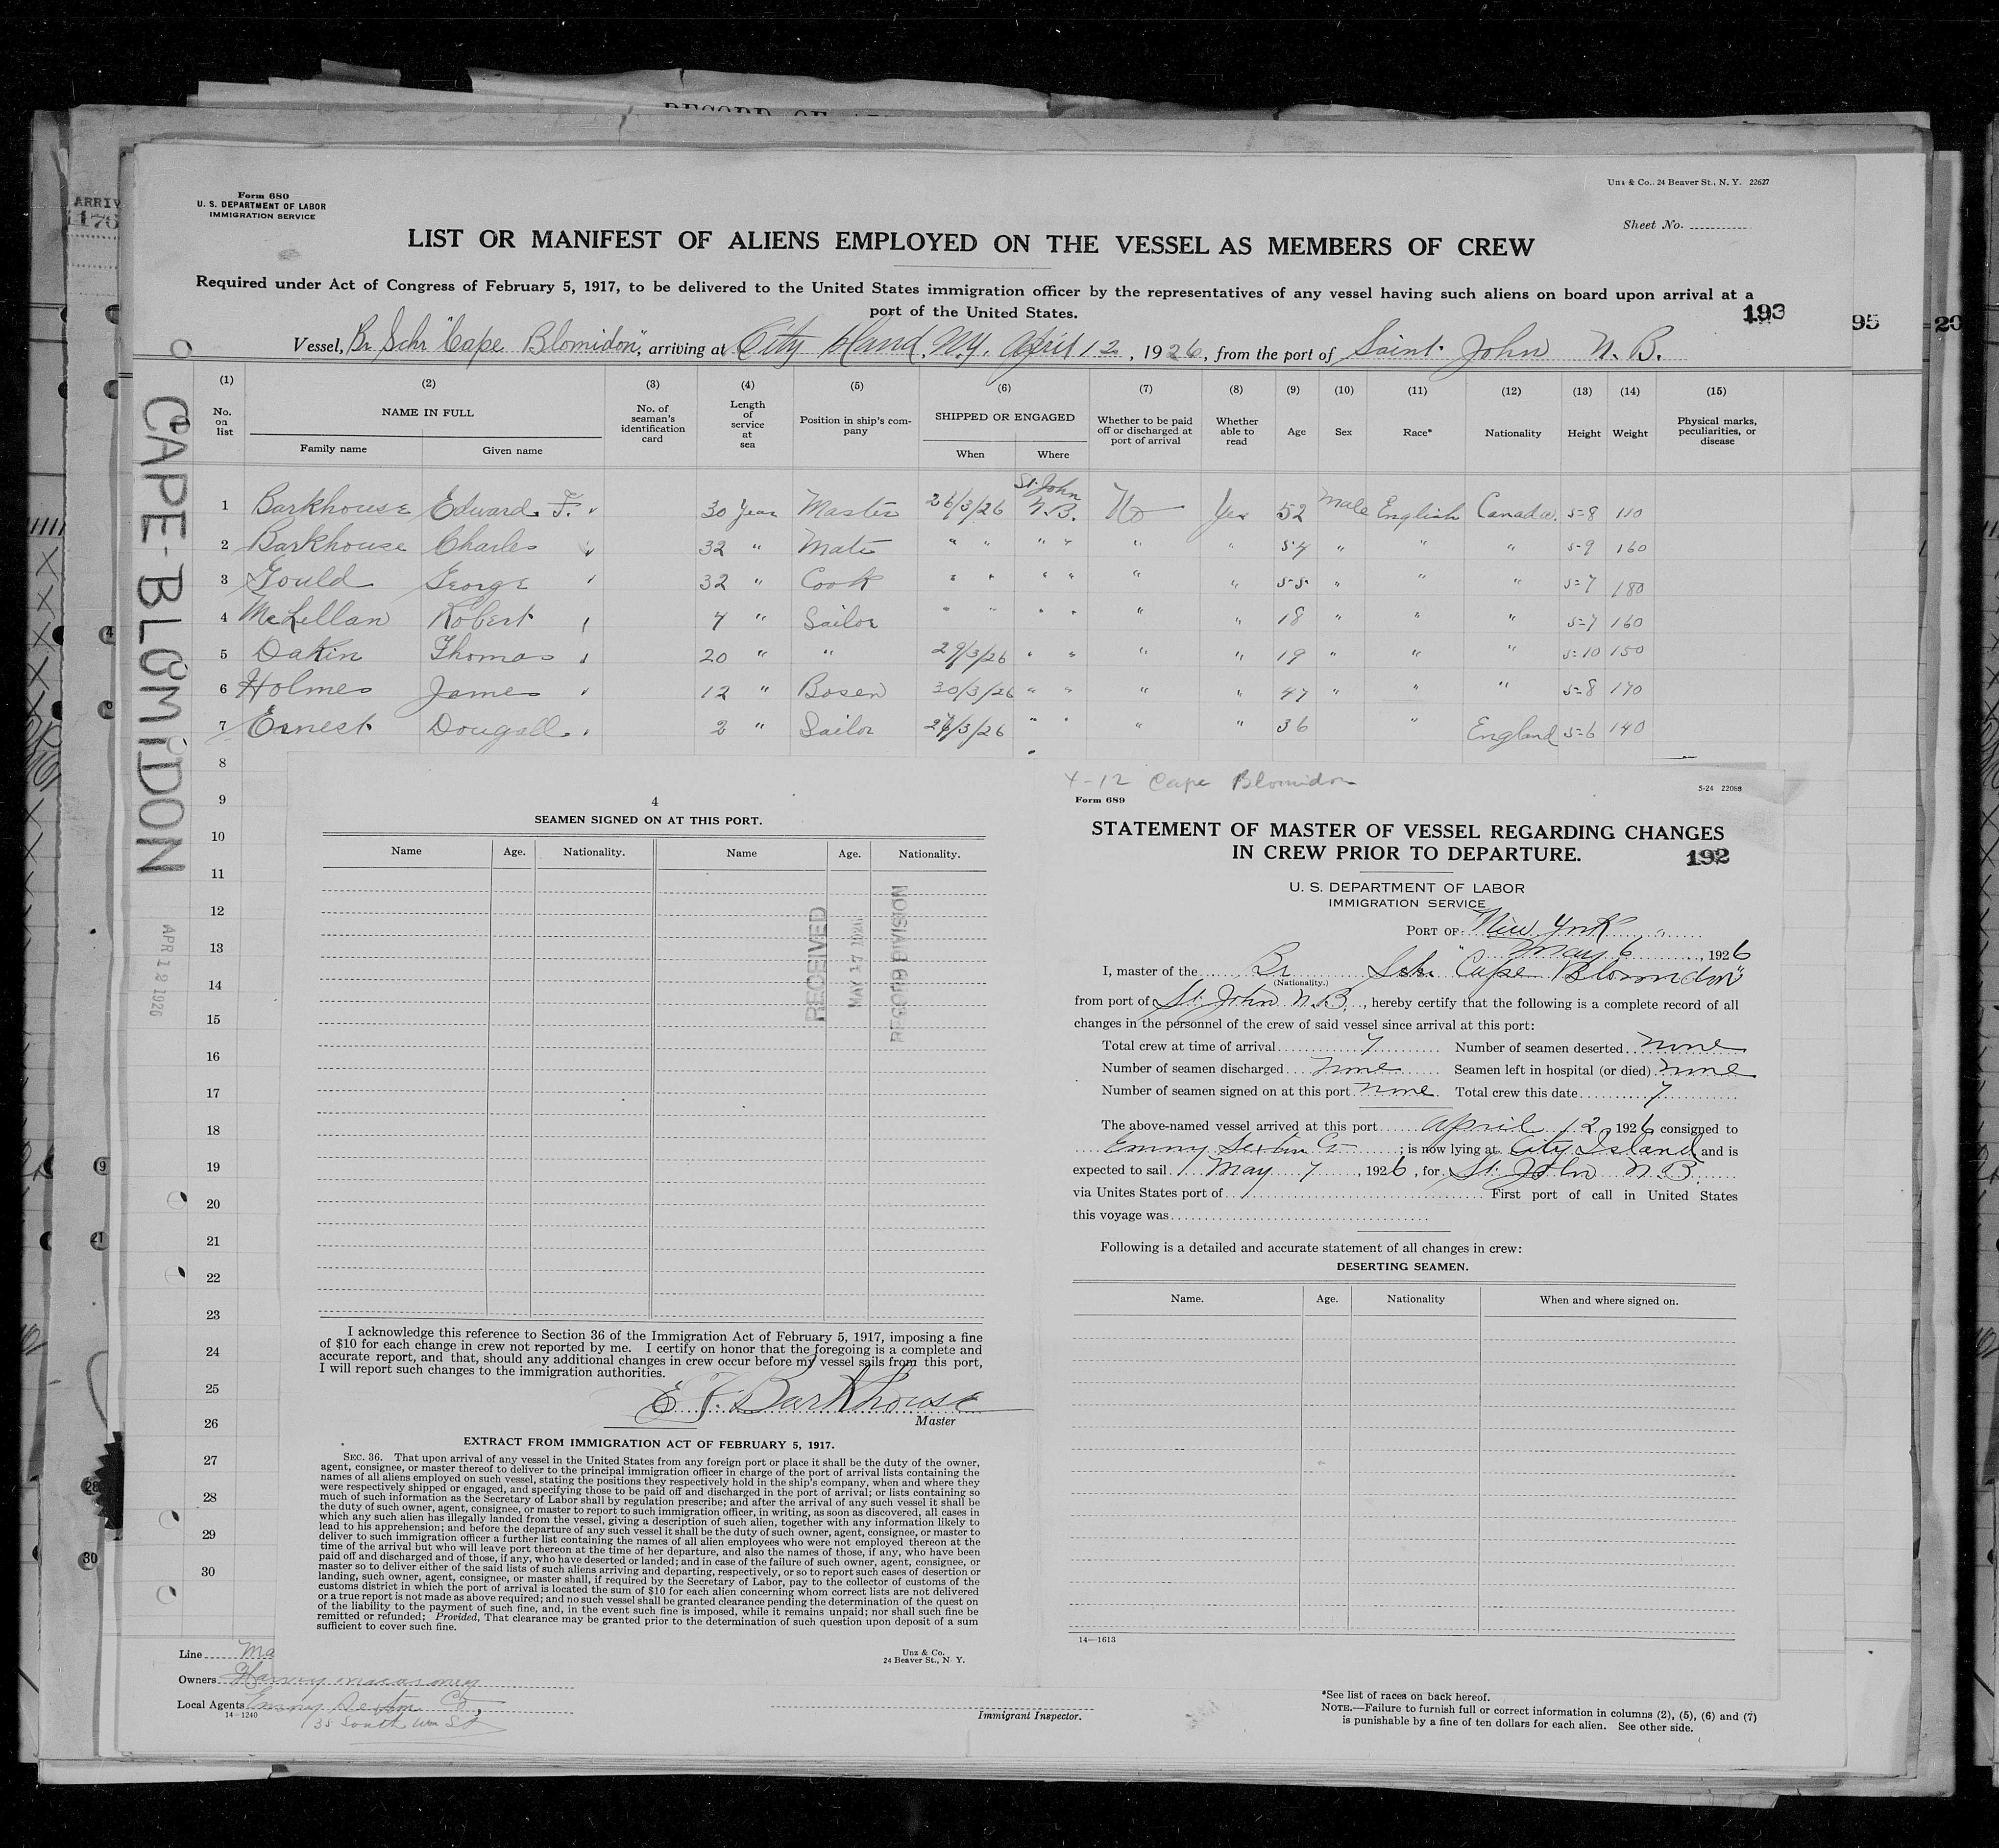 RECORD OF
ARRIV
1176
Form 680
U. S. DEPARTMENT OF LABOR
IMMIGRATION SERVICE
Unz & Co., 24 Beaver St., N. Y. 22627
Sheet No.
LIST OR MANIFEST OF ALIENS EMPLOYED ON THE VESSEL AS MEMBERS OF CREW
Required under Act of Congress of February 5, 1917, to be delivered to the United States immigration officer by the representatives of any vessel having such aliens on board upon arrival at a
port of the United States.
193
95
20
Vessel, Br Schr "Cape Blomidon", arriving at City Island, N.Y. April 12, 1926, from the port of Saint John N. B.
(1) (2) (3) (4) (5) (6) (7) (8) (9) (10) (11) (12) (13) (14) (15)
No. on list NAME IN FULL No. of seaman's identification card Length of service at sea Position in ship's company SHIPPED OR ENGAGED Whether to be paid off or discharged at port of arrival Whether able to read Age Sex Race* Nationality Height Weight Physical marks, peculiarities, or disease
Family name Given name When Where
1 Barkhouse Edward F. 30 Year Master 26/3/26 St. John N.B. No Yes 52 Male English Canada. 5=8 110
2 Barkhouse Charles 32 " Mate " " " " " " 54 " " " 5=9 160
3 Gould George 32 " Cook " " " " " " 55 " " " 5=7 180
4 McLellan Robert 4 " Sailor " " " " " " 18 " " " 5=7 160
5 Dakin Thomas 20 " " 29/3/26 " " " " 19 " " " 5=10 150
6 Holmes James 12 " Bosen 30/3/26 " " " " 47 " " " 5=8 170
7 Ernest Dougall. 2 " Sailor 26/3/26 " " " " 36 " England 5=6 140
8
9
10
11
12
13
14
15
16
17
18
19
20
21
22
23
24
25
26
27
28
29
30
CAPE-BLOMIDON
APR 12 1926
4
SEAMEN SIGNED ON AT THIS PORT.
Name Age. Nationality. Name Age. Nationality.
RECEIVED
MAY 17 1926
RECORD DIVISION
I acknowledge this reference to Section 36 of the Immigration Act of February 5, 1917, imposing a fine
of $10 for each change in crew not reported by me. I certify on honor that the foregoing is a complete and
accurate report, and that, should any additional changes in crew occur before my vessel sails from this port,
I will report such changes to the immigration authorities.
E. F. Barkhouse
Master
EXTRACT FROM IMMIGRATION ACT OF FEBRUARY 5, 1917.
SEC. 36. That upon arrival of any vessel in the United States from any foreign port or place it shall be the duty of the owner,
agent, consignee, or master thereof to deliver to the principal immigration officer in charge of the port of arrival lists containing the
names of all aliens employed on such vessel, stating the positions they respectively hold in the ship's company, when and where they
were respectively shipped or engaged, and specifying those to be paid off and discharged in the port of arrival; or lists containing so
much of such information as the Secretary of Labor shall by regulation prescribe; and after the arrival of any such vessel it shall be
the duty of such owner, agent, consignee, or master to report to such immigration officer, in writing, as soon as discovered, all cases in
which any such alien has illegally landed from the vessel, giving a description of such alien, together with any information likely to
lead to his apprehension; and before the departure of any such vessel it shall be the duty of such owner, agent, consignee, or master to
deliver to such immigration officer a further list containing the names of all alien employees who were not employed thereon at the
time of the arrival but who will leave port thereon at the time of her departure, and also the names of those, if any, who have been
paid off and discharged and of those, if any, who have deserted or landed; and in case of the failure of such owner, agent, consignee, or
master so to deliver either of the said lists of such aliens arriving and departing, respectively, or so to report such cases of desertion or
landing, such owner, agent, consignee, or master shall, if required by the Secretary of Labor, pay to the collector of customs of the
customs district in which the port of arrival is located the sum of $10 for each alien concerning whom correct lists are not delivered
or a true report is not made as above required; and no such vessel shall be granted clearance pending the determination of the quest on
of the liability to the payment of such fine, and, in the event such fine is imposed, while it remains unpaid; nor shall such fine be
remitted or refunded; Provided, That clearance may be granted prior to the determination of such question upon deposit of a sum
sufficient to cover such fine.
Unz & Co.
24 Beaver St., N. Y.
4-12 Cape Blomidon
Form 689
5-24 22088
STATEMENT OF MASTER OF VESSEL REGARDING CHANGES
IN CREW PRIOR TO DEPARTURE.
192
U. S. DEPARTMENT OF LABOR
IMMIGRATION SERVICE
PORT OF New York
May 6, 1926
I, master of the Br Sch. "Cape Blomidon"
(Nationality.)
from port of St. John N.B., hereby certify that the following is a complete record of all
changes in the personnel of the crew of said vessel since arrival at this port:
Total crew at time of arrival 7 Number of seamen deserted none
Number of seamen discharged none Seamen left in hospital (or died) none
Number of seamen signed on at this port none Total crew this date 7
The above-named vessel arrived at this port April 12, 1926 consigned to
Sexton Co ; is now lying at City Island and is
expected to sail May 7, 1926, for St. John N.B.
via Unites States port of First port of call in United States
this voyage was
Following is a detailed and accurate statement of all changes in crew:
DESERTING SEAMEN.
Name. Age. Nationality When and where signed on.
14—1613
Line Ma
Owners
Local Agents Sexton Co,
35 South Wm St
14—1240
Immigrant Inspector.
*See list of races on back hereof.
NOTE.—Failure to furnish full or correct information in columns (2), (5), (6) and (7)
is punishable by a fine of ten dollars for each alien. See other side.